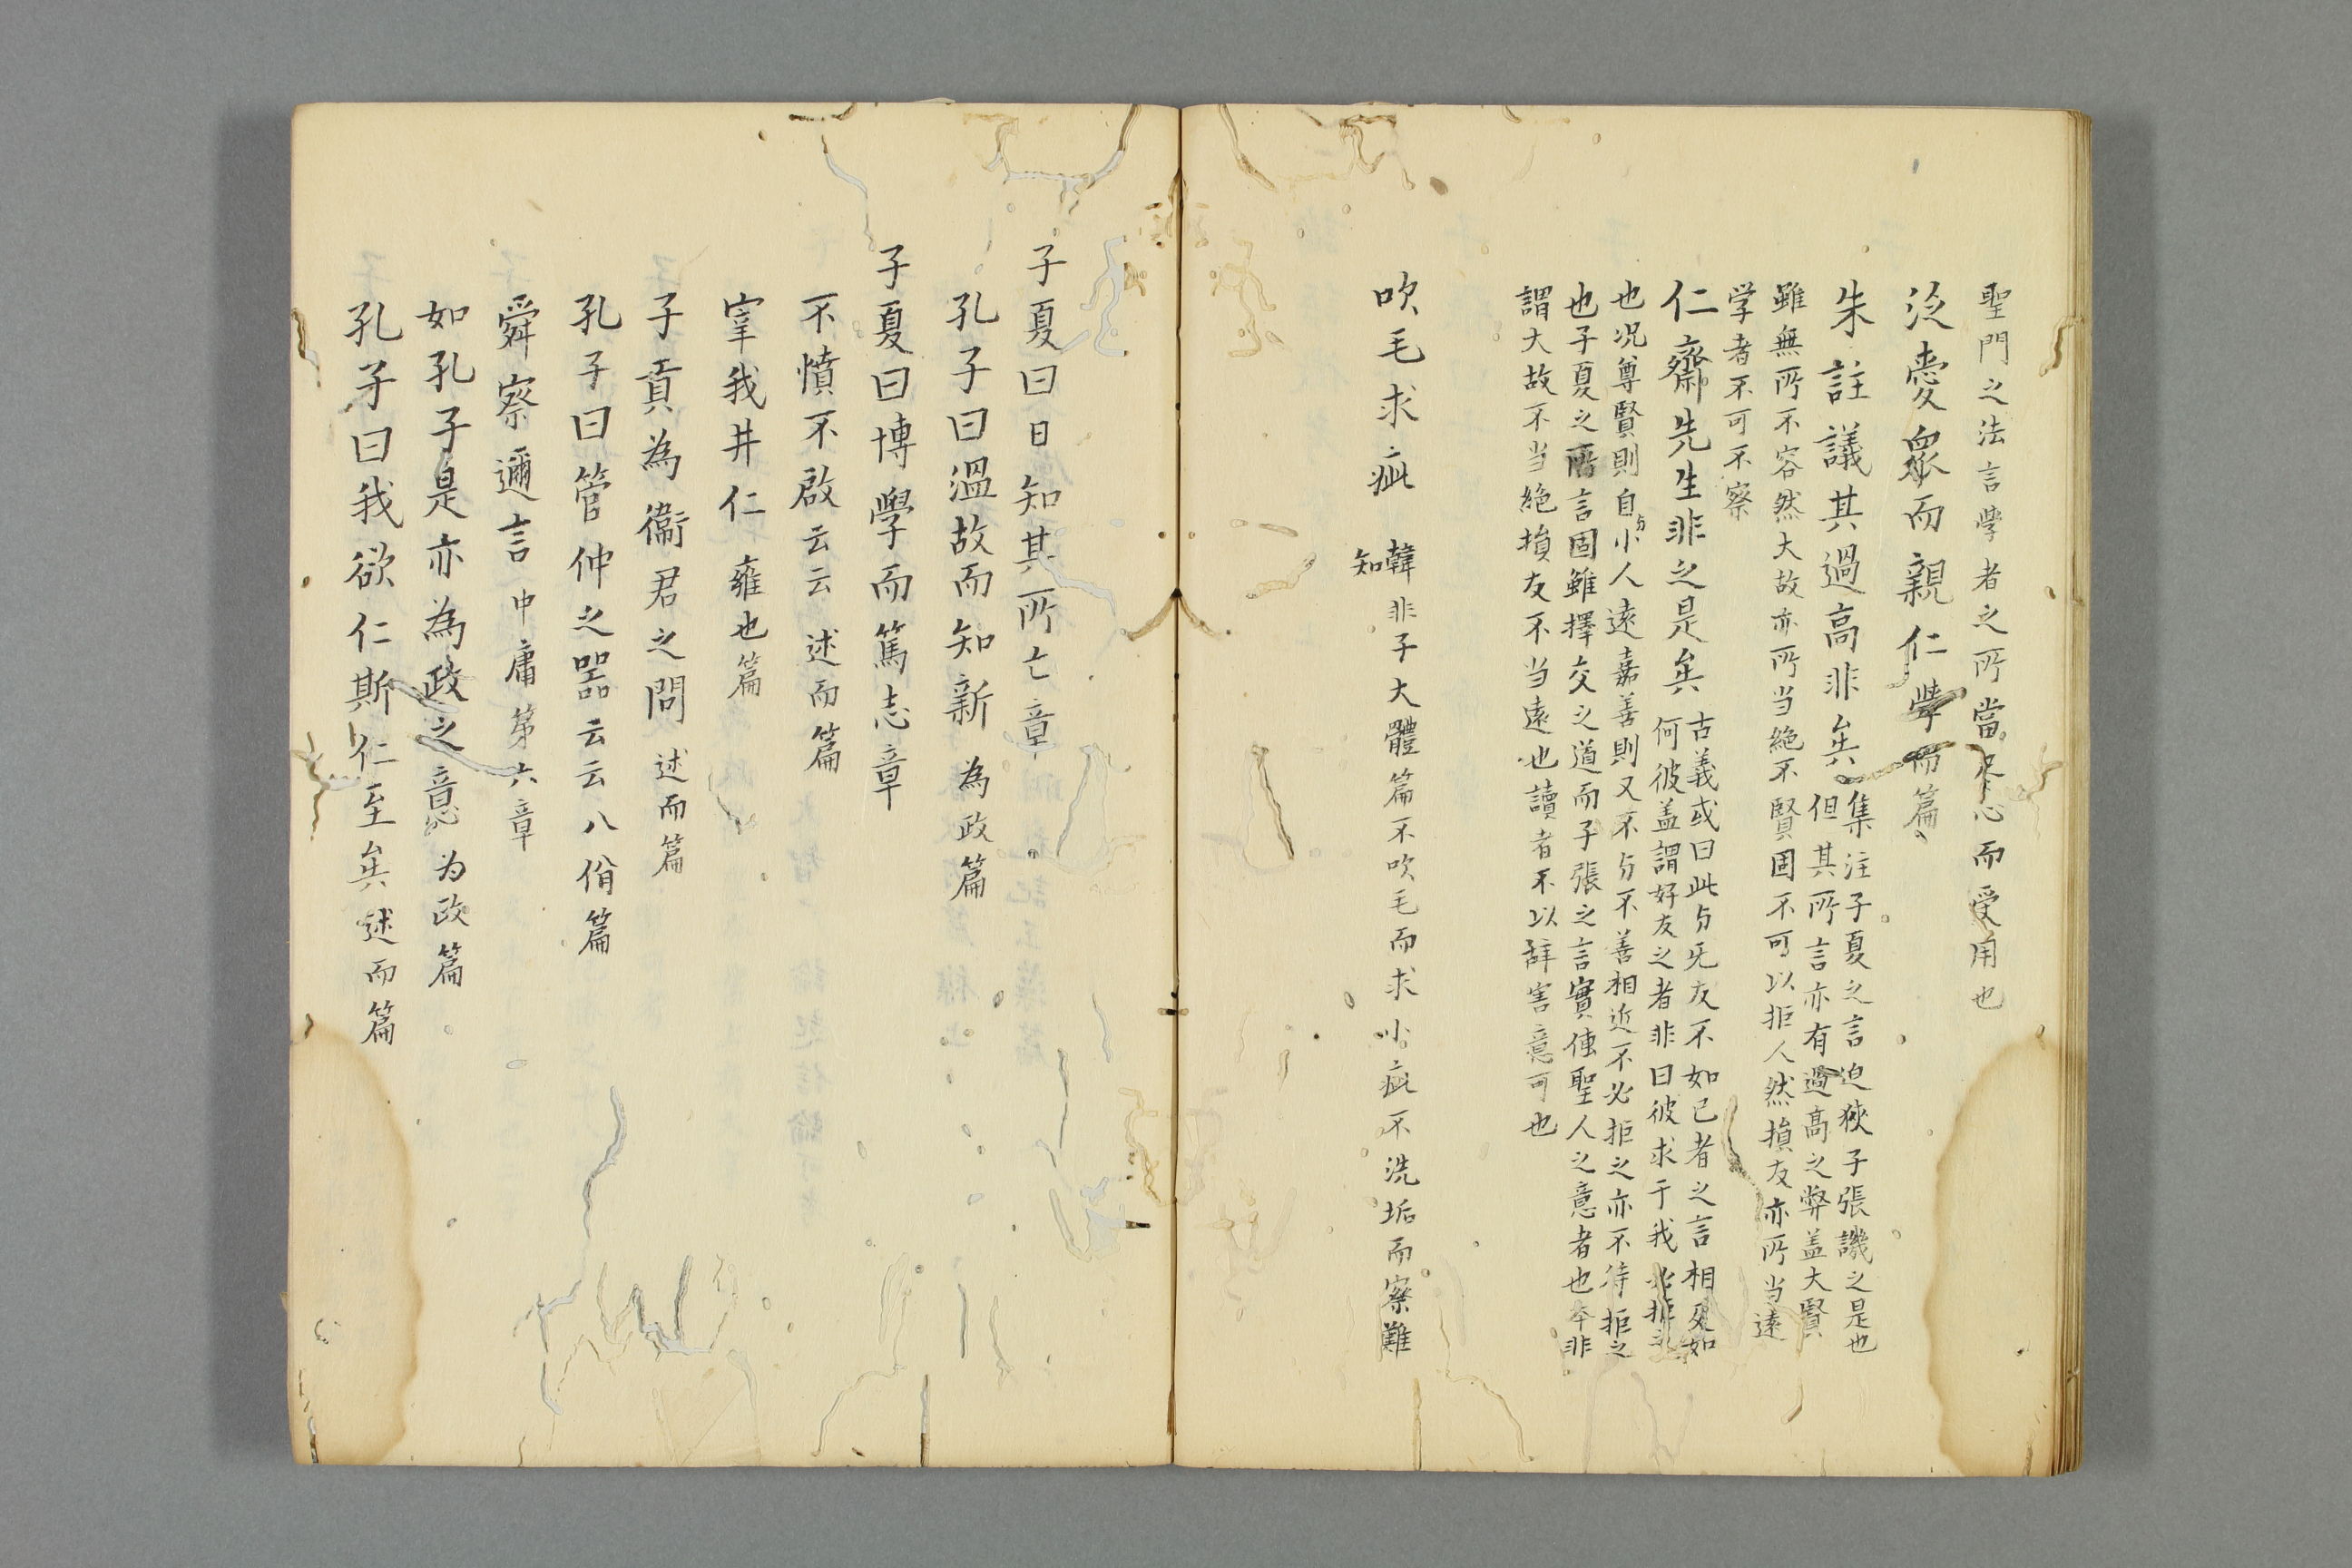 聖門之法言學者之所當尽心而受用也
泛愛衆而親仁學而篇
朱註議其過高非矣 集注子夏之言迫狹子張譏之是也
但其所言亦有過高之弊盖大賢
雖無所不容然大故亦所当絶不賢固不可以拒人然損友亦所当遠
学者不可不察
仁齋先生非之是矣 古義或曰此与旡友不如己者之言相反如
何彼盖謂好友之者非曰彼求于我必拒之
也况尊賢則自与小人遠嘉善則又不与不善相近不必拒之亦不待拒之
也子夏之所言固雖擇交之道而子張之言實傳聖人之意者也本非
謂大故不当絶損友不当遠也讀者不以辞害意可也
吹毛求疵 韓非子大體篇不吹毛而求小疵不洗垢而察難
知
子夏曰日知其所亡章
孔子曰溫故而知新 為政篇
子夏曰博學而篤志章
不憤不啟云云 述而篇
宰我井仁 雍也篇
子貢為衞君之問 述而篇
孔子曰管仲之器云云 八佾篇
舜察邇言 中庸第六章
如孔子是亦為政之意 为政篇
孔子曰我欲仁斯仁至矣 述而篇